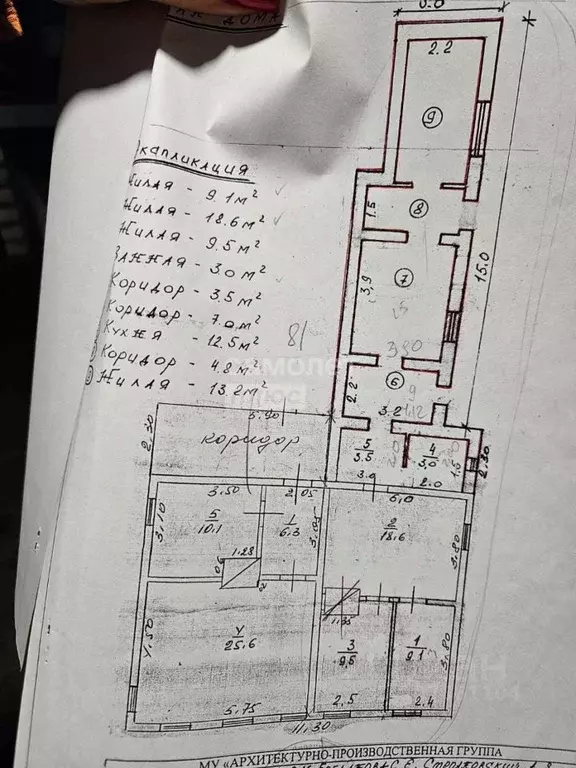 ДОМА
6.0
КАПЛИКАЦИЯ
ЖИЛАЯ - 9.1 м²
ЖИЛАЯ - 18.6 м²
ЖИЛАЯ - 9.5 м²
ВАННАЯ - 3.0 м²
КОРИДОР - 3.5 м²
КОРИДОР - 7.0 м²
КУХНЯ - 12.5 м²
КОРИДОР - 4.8 м²
ЖИЛАЯ - 13.2 м²
2.2
9
1.5
8
7
3,9
15.0
6
2.2
3.2
5
3.5
4
3,0
1.5
2.30
3.0
2.0
5.90
коридор
2.30
3.50
2.05
6,0
3.10
5
10,1
1
6.3
3.05
2
18.6
3.80
1.28
1.35
4.50
4
25.6
3
9,5
1
9.1
3.80
5.75
2.5
2.4
11.30
МУ «АРХИТЕКТУРНО-ПРОИЗВОДСТВЕННАЯ ГРУППА